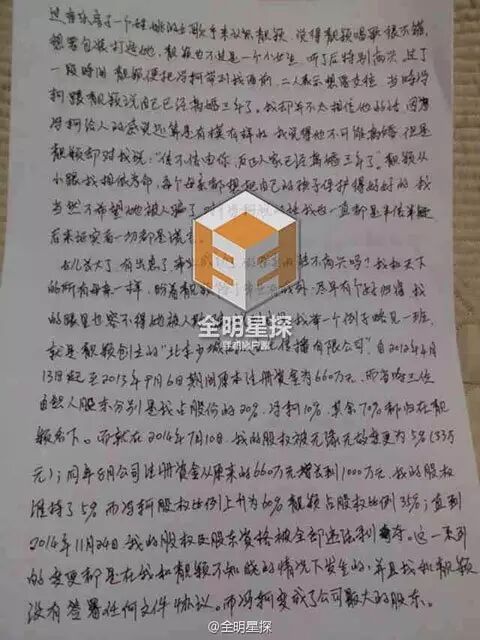 过 一个姓 的歌手来认识靓颖,说得靓颖唱歌很不错,
想要包装打造她,靓颖也不过是一个小女生,听了后特别高兴。过了
一段时间靓颖便把冯柯带到我面前,二人表示想要交往,当时冯
柯跟靓颖说自己已经离婚三年了。我却并不太相信他的话,因为
冯柯给人的感觉还算是有模有样的,我觉得他不可能离婚,但是
靓颖却对我说:“信不信由你,反正人家已经离婚三年了。”靓颖从
小跟我相依为命,每个母亲都想把自己的孩子保护得好好的,我
当然不希望她被人骗了,对 冯柯 我也一直都是半信半疑
后来证实着一切都是谎言。
女儿长大了,有出息了, 能不高兴吗?我和天下
的所有母亲一样,盼着靓颖 尽早有个好归宿,我
的眼里也容不得她被人 我举一个例子略见一斑,
就是靓颖创立的“北京少城 传播有限公司”,自2012年4月
13日起至2013年9月6日期间原本注册资金为660万元,而当时三位
自然人股东分别是我占股份的20%,冯柯10%,其余70%都归在靓
颖名下。而就在2014年7月10日,我的股权被无缘无故变更为5%(33万
元);同年8月公司注册资金从原来的660万元增长到1000万元,我的股权
维持了5%而冯柯股权比例上升为60%靓颖占股权比例35%;直到
2014年11月24日我的股权及股东资格被全部违法剥夺。这一系列
的变更都是在我和靓颖不知晓的情况下发生的,并且我和靓颖
没有签署任何文件协议。而冯柯变成了公司最大的股东。
全明星探
@全明星探